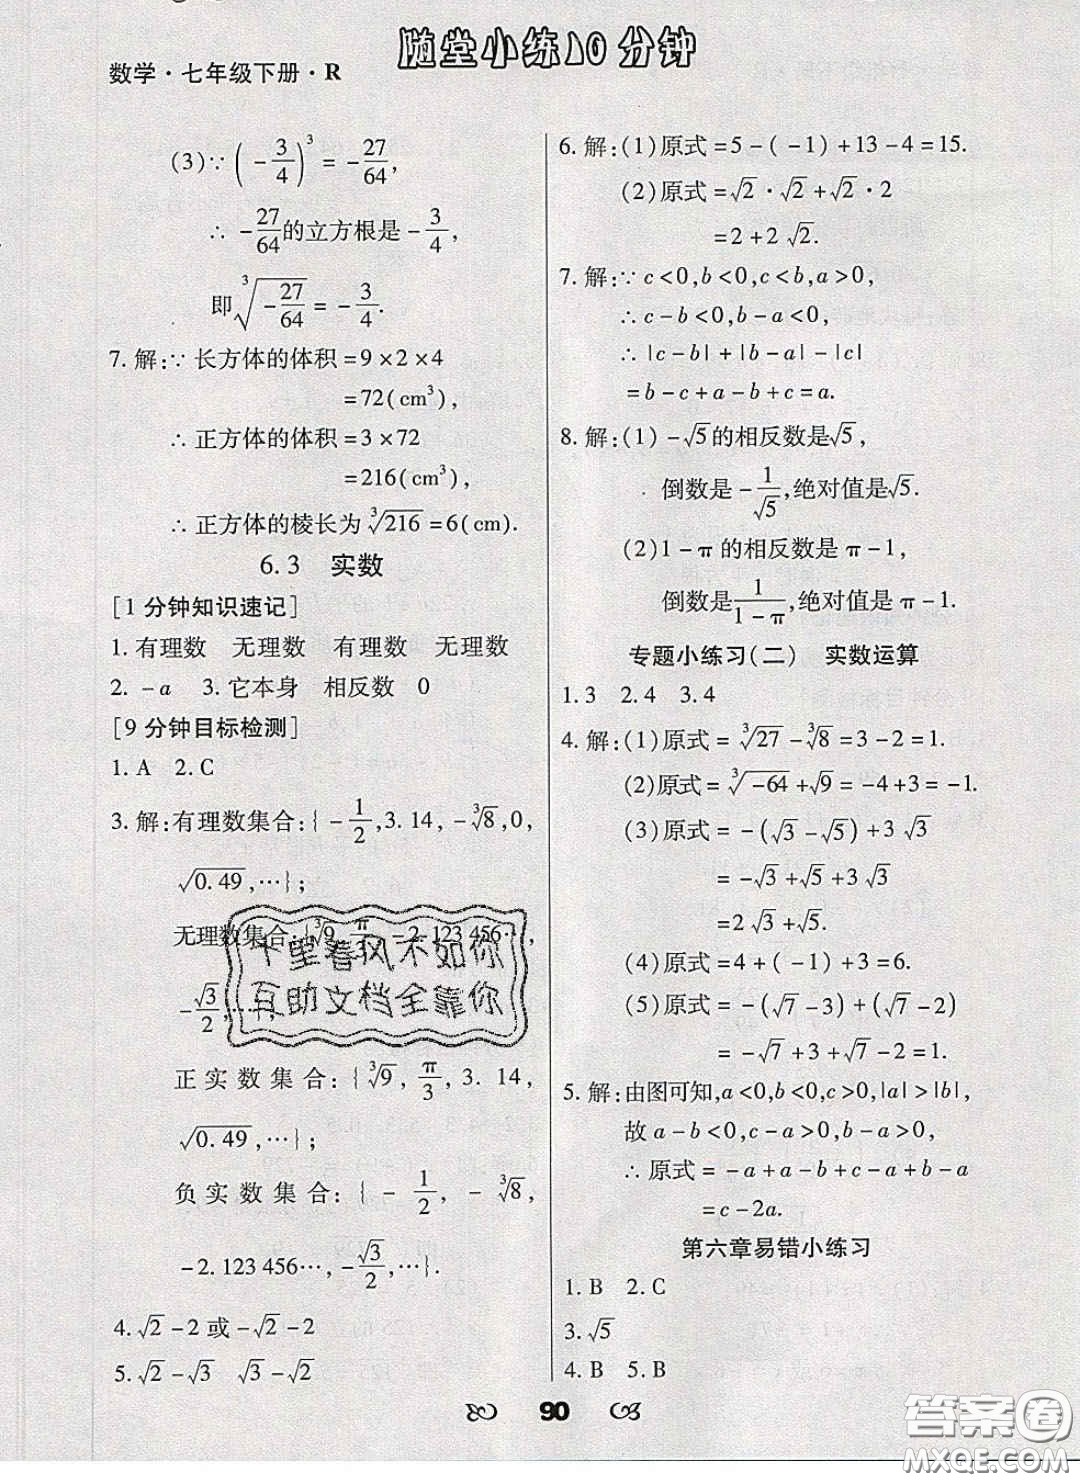 随堂小练10分钟
数学·七年级下册·R
(3)∵(-3/4)³=-27/64,
∴-27/64的立方根是-3/4,
即∛(-27/64)=-3/4.
7.解:∵长方体的体积=9×2×4
=72(cm³),
∴正方体的体积=3×72
=216(cm³),
∴正方体的棱长为∛216=6(cm).
6.3 实数
[1分钟知识速记]
1.有理数 无理数 有理数 无理数
2.-a 3.它本身 相反数 0
[9分钟目标检测]
1.A 2.C
3.解:有理数集合:{-1/2,3.14,-∛8,0,
√0.49,…};
无理数集合:{∛9,π/3,-2.123 456…,
-√3/2,…};
正实数集合:{∛9,π/3,3.14,
√0.49,…};
负实数集合:{-1/2,-∛8,
-2.123 456…,-√3/2,…}.
4.√2-2或-√2-2
5.√2-√3 √3-√2
6.解:(1)原式=5-(-1)+13-4=15.
(2)原式=√2·√2+√2·2
=2+2√2.
7.解:∵c<0,b<0,c<b,a>0,
∴c-b<0,b-a<0,
∴|c-b|+|b-a|-|c|
=b-c+a-b+c=a.
8.解:(1)-√5的相反数是√5,
倒数是-1/√5,绝对值是√5.
(2)1-π的相反数是π-1,
倒数是1/(1-π),绝对值是π-1.
专题小练习(二) 实数运算
1.3 2.4 3.4
4.解:(1)原式=∛27-∛8=3-2=1.
(2)原式=∛-64+√9=-4+3=-1.
(3)原式=-(√3-√5)+3√3
=-√3+√5+3√3
=2√3+√5.
(4)原式=4+(-1)+3=6.
(5)原式=-(√7-3)+(√7-2)
=-√7+3+√7-2=1.
5.解:由图可知,a<0,b<0,c>0,|a|>|b|,
故a-b<0,c-a>0,b-a>0,
∴原式=-a+a-b+c-a+b-a
=c-2a.
第六章易错小练习
1.B 2.C
3.√5
4.B 5.B
十里春风不如你
互助文档全靠你
90
答案圈
MXQE.COM